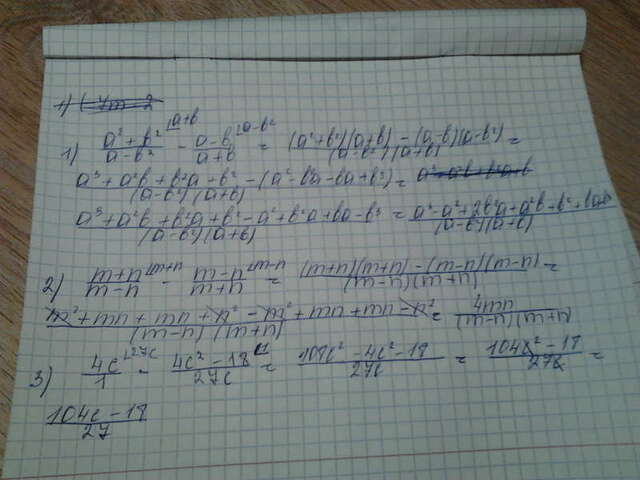 1) (a² + b²)/(a - b²) |a+b - (a - b)/(a + b) |a-b² = ((a² + b²)(a + b) - (a - b)(a - b²))/((a - b²)(a + b)) =
(a³ + a²b + b²a + b² - (a² - b²a - ba + b³))/((a - b²)(a + b)) =
(a³ + a²b + b²a + b³ - a² + b²a + ba - b³)/((a - b²)(a + b)) = (a³ - a² + 2b²a + a²b - b² + ba)/((a - b²)(a + b))
2) (m + n)/(m - n) |m+n - (m - n)/(m + n) |m-n = ((m + n)(m + n) - (m - n)(m - n))/((m - n)(m + n)) =
(m² + mn + mn + n² - m² + mn + mn - n²)/((m - n)(m + n)) = 4mn/((m - n)(m + n))
3) 4c/1 |27c - (4c² - 18)/27c = (108c² - 4c² - 18)/27c = (104c² - 18)/27c =
(104c - 18)/27